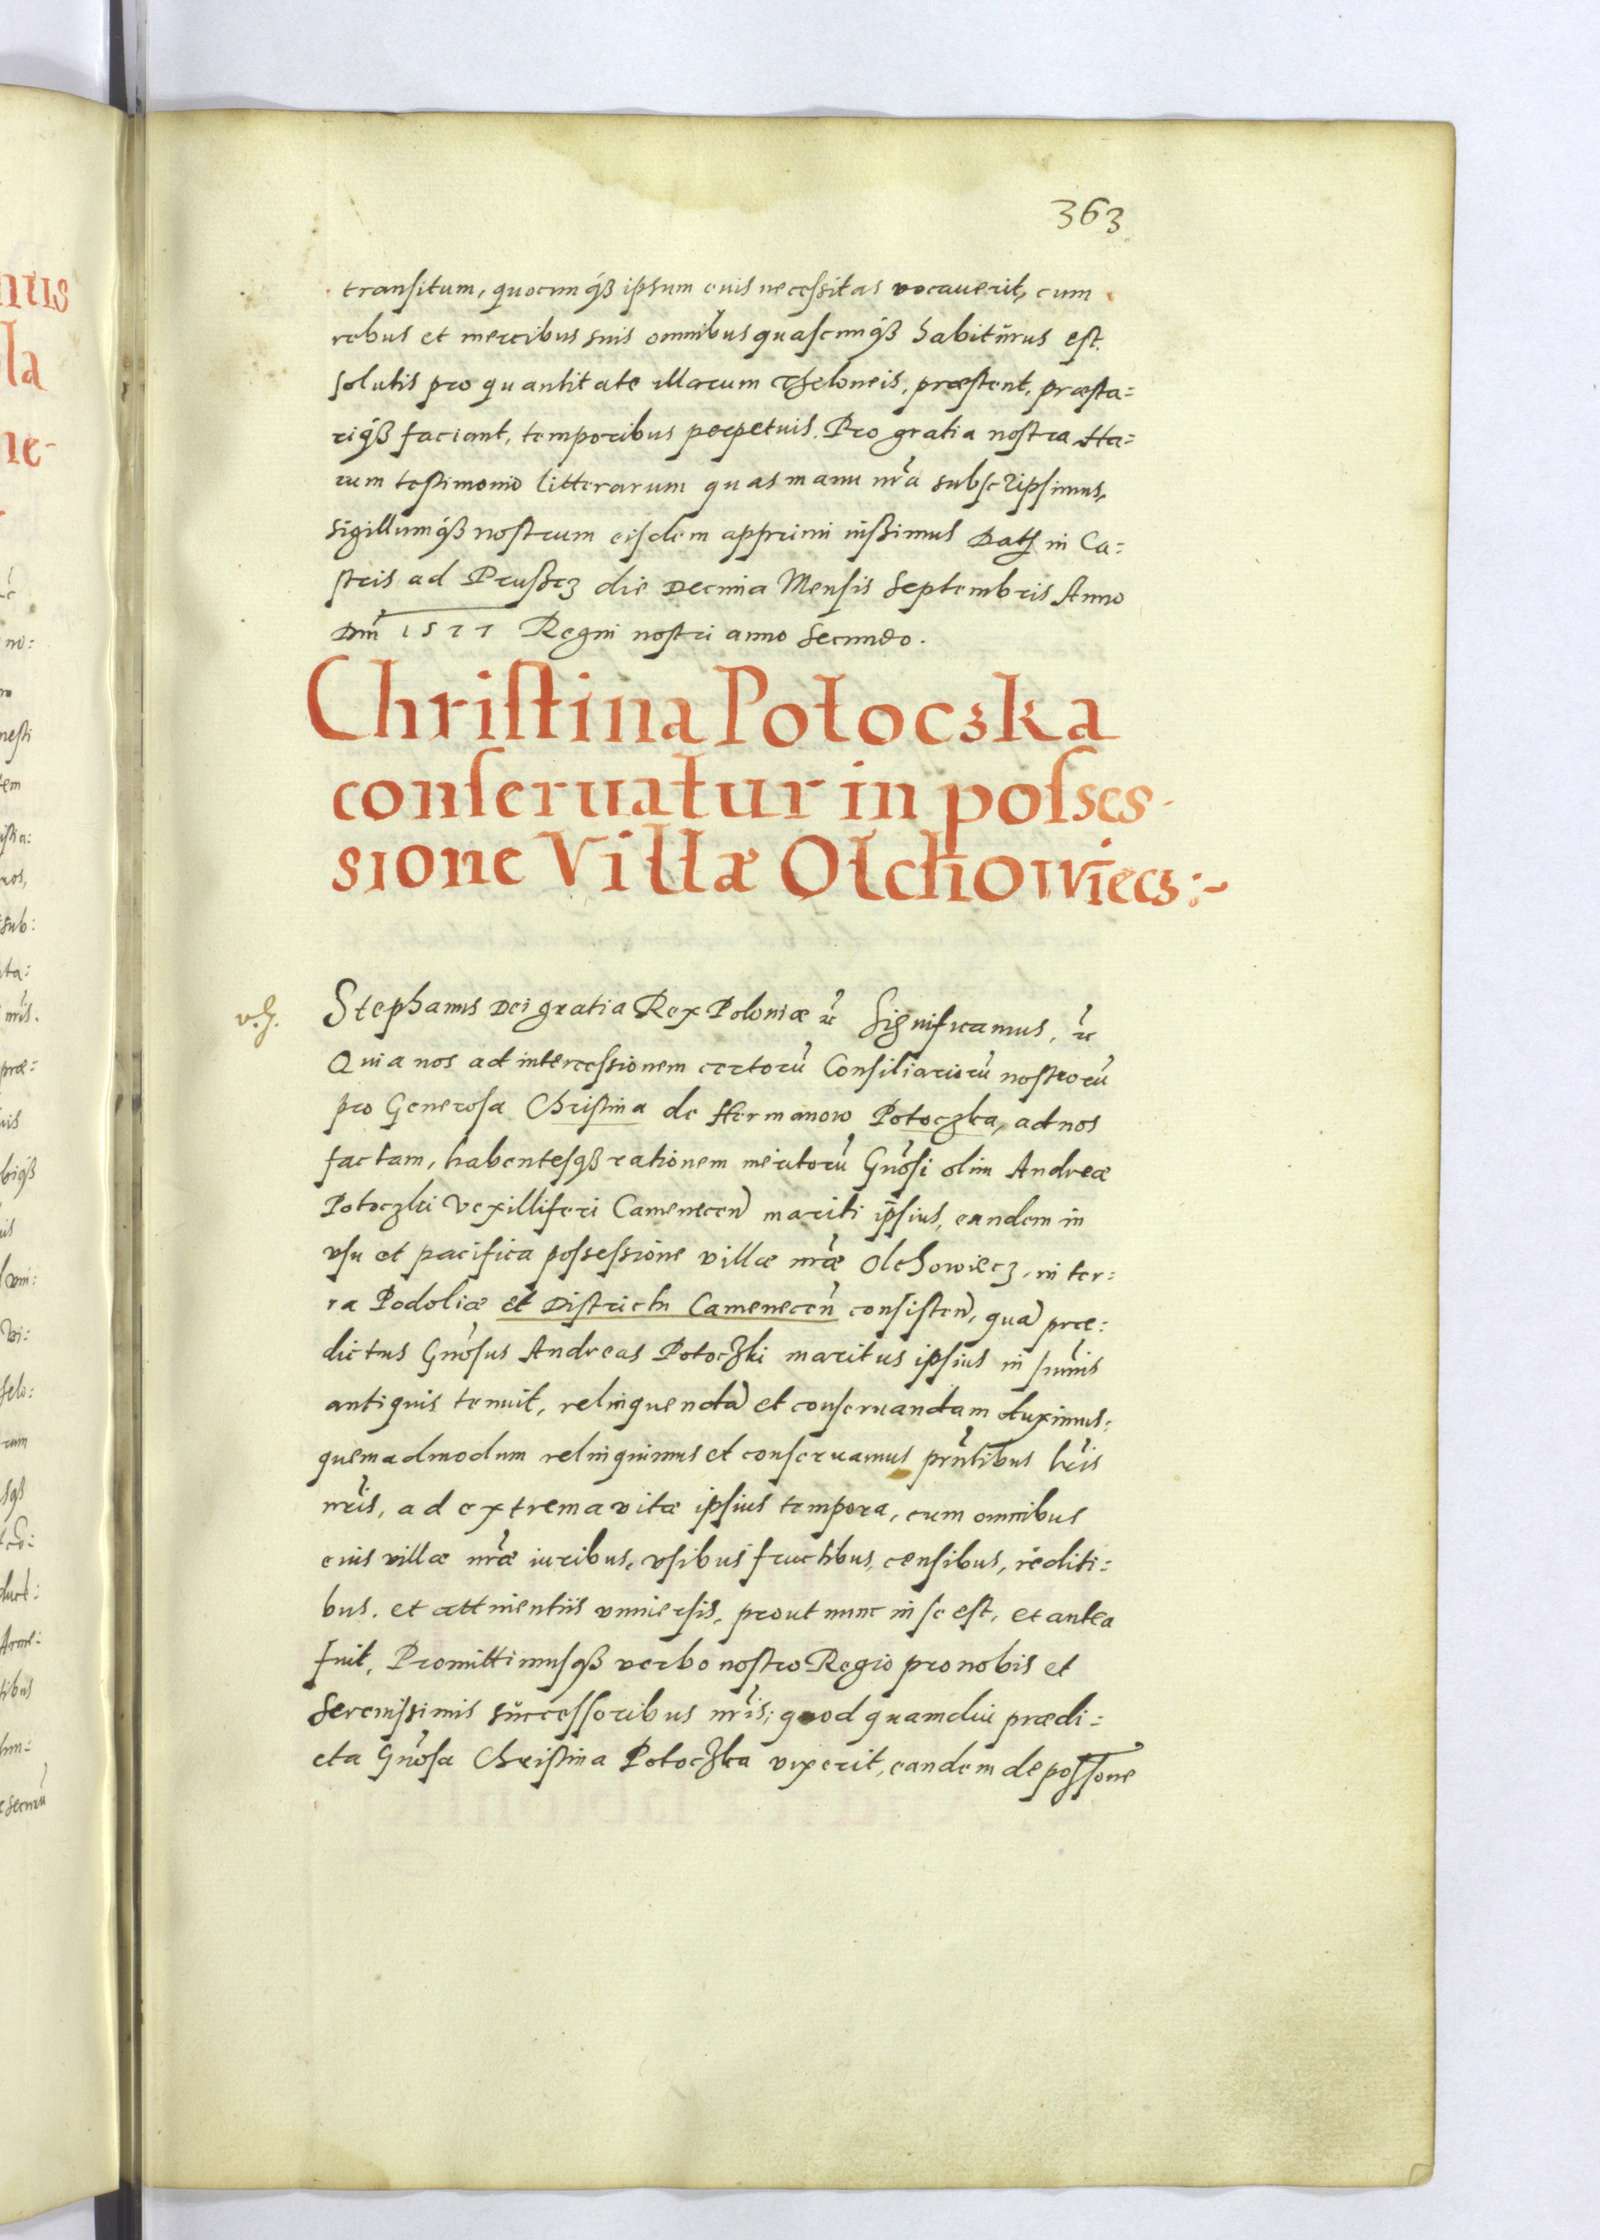 363
transitum, quocunq́ꝫ ipsum cuis necessitas vocauerit, cum
rebus et mercibus suis omnibus quascunq́ꝫ habiturus est.
solutis pro quantitate illarum Theloneis, præstent, præsta=
riq́ꝫ faciant, temporibus perpetuis. Pro gratia nostra Ha=
rum testimonio litterarum quas manu nrã subscripsimus,
sigillumq́ꝫ nostrum eisdem apprimi iussimus Datꝫ in Ca=
stris ad Prusscz die Decima Mensis Septembris Anno
Dnĩ 1577 Regni nostri anno Secundo.
Christina Potoczka
conseruatur in posses-
sione Villæ Olchowiecz:~
Stephanus Dei gratia Rex Poloniæ ꝛc̃ Significamus, ꝛc̃
Quia nos ad intercessionem certorũ Consiliariorũ nostrorũ
pro Generosa Christina de Hermanow Potoczka, ad nos
factam, habentesqꝫ rationem meritorũ Gnõsi olim Andreæ
Potoczki Vexilliferi Camenecen̄ mariti ipsius, eandem in
vsu et pacifica possessione villæ nrãe Olchowiecz, in ter=
ra Podoliæ et Districtu Camenecen̄ consisten̄, quā præ=
dictus Gnõsus Andreas Potoczki maritus ipsius in sum̃is
antiquis tenuit, relinquendā et conseruandam duximus,
quemadmodum relinquimus et conseruamus prñtibus lrĩs
nrĩs, ad extrema vitæ ipsius tempora, cum omnibus
cuis villæ nrãe iuribus, vsibus fructibus, censibus, rediti=
bus, et attinentiis vniuersis, prout nunc in se est, et antea
fuit, Promittimusqꝫ verbo nostro Regio pro nobis et
Serenissimis successoribus nrĩs, quod quamdiu prædi=
cta Gnõsa Christina Potoczka vixerit, eandem de possone